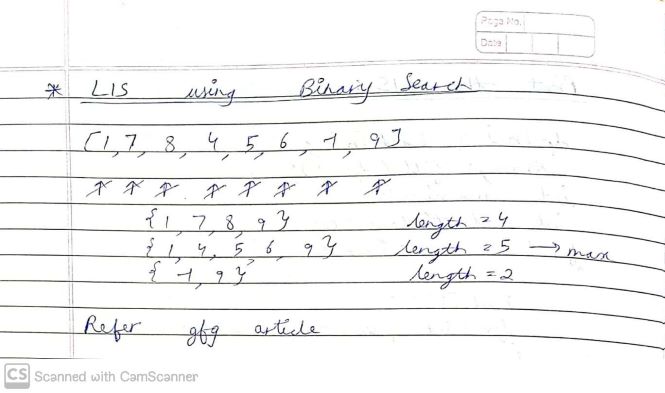 Page No.
Date
* LIS using Binary Search
[1, 7, 8, 4, 5, 6, -1, 9]
↑ ↑ ↑ ↑ ↑ ↑ ↑ ↑
{1, 7, 8, 9} length = 4
{1, 4, 5, 6, 9} length = 5 → max
{-1, 9} length = 2
Refer gfg article
CS Scanned with CamScanner